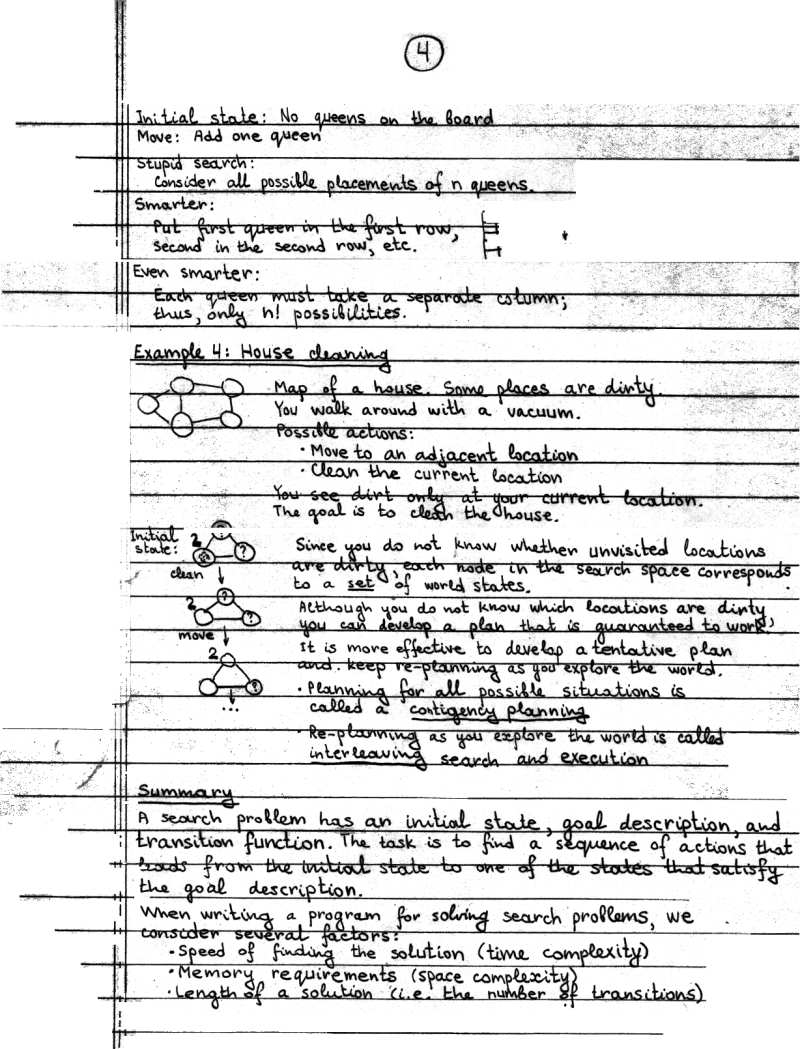 4
Initial state: No queens on the board
Move: Add one queen
Stupid search:
Consider all possible placements of n queens.
Smarter:
Put first queen in the first row,
second in the second row, etc.
Even smarter:
Each queen must take a separate column;
thus, only n! possibilities.
Example 4: House cleaning
Map of a house. Some places are dirty.
You walk around with a vacuum.
Possible actions:
• Move to an adjacent location
• Clean the current location
You see dirt only at your current location.
The goal is to clean the house.
Initial
state:
2
?
clean
2
?
?
move
2
?
...
Since you do not know whether unvisited locations
are dirty, each node in the search space corresponds
to a set of world states.
Although you do not know which locations are dirty,
you can develop a plan that is guaranteed to work.
It is more effective to develop a tentative plan
and keep re-planning as you explore the world.
• Planning for all possible situations is
called a contigency planning
• Re-planning as you explore the world is called
interleaving search and execution
Summary
A search problem has an initial state, goal description, and
transition function. The task is to find a sequence of actions that
leads from the initial state to one of the states that satisfy
the goal description.
When writing a program for solving search problems, we
consider several factors:
• Speed of finding the solution (time complexity)
• Memory requirements (space complexity)
• Length of a solution (i.e. the number of transitions)